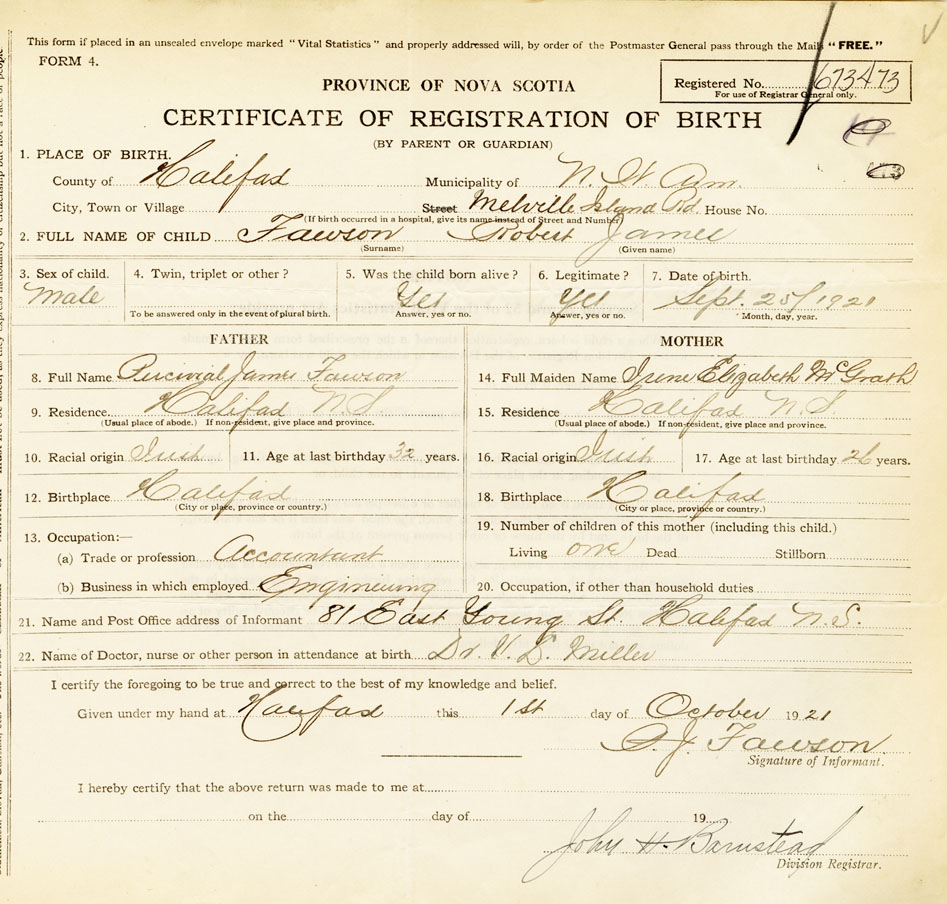 This form if placed in an unsealed envelope marked "Vital Statistics" and properly addressed will, by order of the Postmaster General pass through the Mail "FREE."
FORM 4.
PROVINCE OF NOVA SCOTIA
Registered No. 673473
For use of Registrar General only.
CERTIFICATE OF REGISTRATION OF BIRTH
(BY PARENT OR GUARDIAN)
1. PLACE OF BIRTH.
County of Halifax Municipality of N. W. Arm.
City, Town or Village Street Melville Island Rd. House No.
(If birth occurred in a hospital, give its name instead of Street and Number)
2. FULL NAME OF CHILD Fawson Robert James
(Surname) (Given name)
3. Sex of child. 4. Twin, triplet or other? 5. Was the child born alive? 6. Legitimate? 7. Date of birth.
Male Yes Yes Sept. 25/1921
To be answered only in the event of plural birth. Answer, yes or no. Answer, yes or no. Month, day, year.
FATHER MOTHER
8. Full Name Percival James Fawson 14. Full Maiden Name Irene Elizabeth McGrath
9. Residence Halifax N.S. 15. Residence Halifax N.S.
(Usual place of abode.) If non-resident, give place and province. (Usual place of abode.) If non-resident, give place and province.
10. Racial origin Irish 11. Age at last birthday 32 years. 16. Racial origin Irish 17. Age at last birthday 26 years.
12. Birthplace Halifax 18. Birthplace Halifax
(City or place, province or country.) (City or place, province or country.)
13. Occupation:— 19. Number of children of this mother (including this child.)
(a) Trade or profession Accountant Living one Dead Stillborn
(b) Business in which employed Engineering 20. Occupation, if other than household duties
21. Name and Post Office address of Informant 81 East Young St. Halifax N.S.
22. Name of Doctor, nurse or other person in attendance at birth Dr. V. L. Miller
I certify the foregoing to be true and correct to the best of my knowledge and belief.
Given under my hand at Halifax this 1st day of October 1921
P. J. Fawson.
Signature of Informant.
I hereby certify that the above return was made to me at
on the day of 19
John H. Barnstead
Division Registrar.